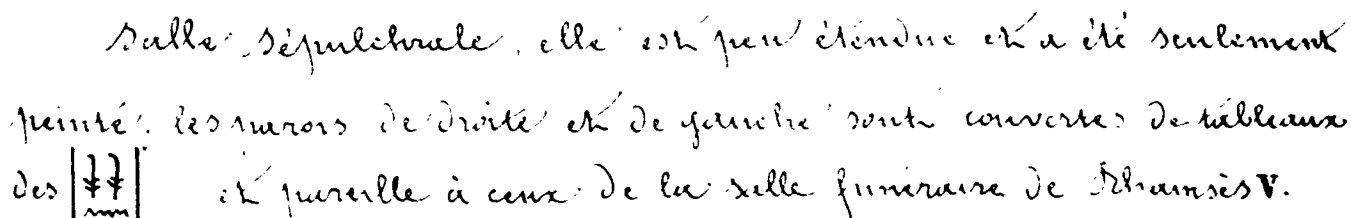 Salle sépulchrale, elle est peu étendue et a été seulement
peinte. les parois de droite et de gauche sont couvertes de tableaux
des et pareille à ceux de la salle funéraire de Rhamsès V.